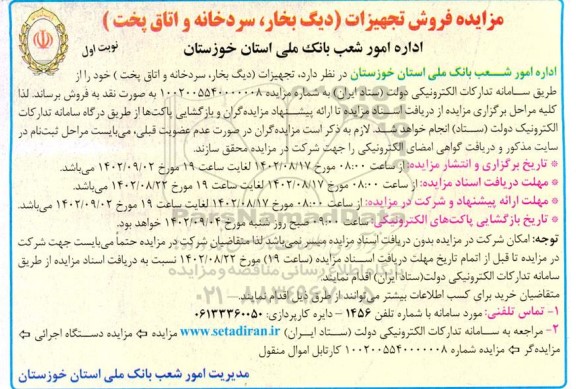 مزایده فروش تجهیزات (دیگ بخار، سردخانه و اتاق پخت )
نوبت اول
اداره امور شعب بانک ملی استان خوزستان
اداره امور شـــعب بانک ملی استان خوزستان در نظر دارد، تجهیزات (دیگ بخار، سردخانه و اتاق پخت ) خود را از
طریق سـامانه تدارکات الکترونیکی دولت (ستاد ایران) به شماره مزایده ۱۰۰۲۰۰۵۵۴۰۰۰۰۰۰۸ به صورت نقد به فروش برساند. لذا
کلیه مراحل برگزاری مزایده از دریافت اسـناد مزایده تا ارائه پیشـنهاد مزایده‌گران و بازگشایی پاکت‌ها از طریق درگاه سامانه تدارکات
الکترونیک دولت (ســتاد) انجام خواهد شــد. لازم به ذکر است مزایده‌گران در صورت عدم عضویت قبلی، می‌بایست مراحل ثبت‌نام در
سایت مذکور و دریافت گواهی امضای الکترونیکی را جهت شرکت در مزایده محقق سازند.
* تاریخ برگزاری و انتشار مزایده: از ساعت ۰۸:۰۰ مورخ ۱۴۰۲/۰۸/۱۷ لغایت ساعت ۱۹ مورخ ۱۴۰۲/۰۹/۰۲ می‌باشد.
* مهلت دریافت اسناد مزایده: از ساعت ۰۸:۰۰ مورخ ۱۴۰۲/۰۸/۱۷ لغایت ساعت ۱۹ مورخ ۱۴۰۲/۰۸/۲۲ می‌باشد.
* مهلت ارائه پیشنهاد و شرکت در مزایده: از ساعت ۰۸:۰۰ مورخ ۱۴۰۲/۰۸/۱۷ لغایت ساعت ۱۹ مورخ ۱۴۰۲/۰۹/۰۲ می‌باشد.
* تاریخ بازگشایی پاکت‌های الکترونیکی: ساعت ۰۹:۰۰ صبح روز شنبه مورخ ۱۴۰۲/۰۹/۰۴ خواهد بود.
توجه: امکان شرکت در مزایده بدون دریافت اسناد مزایده میسر نمی‌باشد لذا متقاضیان شرکت در مزایده حتماً می‌بایست جهت شرکت
در مزایده تا قبل از اتمام تاریخ مهلت دریافت اســناد مزایده (ساعت ۱۹) مورخ ۱۴۰۲/۰۸/۲۲ نسبت به دریافت اسناد مزایده از طریق
سامانه تدارکات الکترونیکی دولت(ستاد ایران) اقدام نمایند.
متقاضیان خرید برای کسب اطلاعات بیشتر می‌توانند از طرق ذیل اقدام نمایند...
۱- تماس تلفنی: مورد سامانه با شماره تلفن ۱۴۵۶ – دایره کارپردازی: ۰۶۱۳۳۳۶۰۰۵۰
۲- مراجعه به سـامانه تدارکات الکترونیکی دولت (سـتاد ایـران) www.setadiran.ir مزایده ⇦ مزایده دستگاه اجرائی ⇦
مزایده‌گر ⇦ مزایده شماره ۱۰۰۲۰۰۵۵۴۰۰۰۰۰۰۸ کارتابل اموال منقول
مدیریت امور شعب بانک ملی استان خوزستان